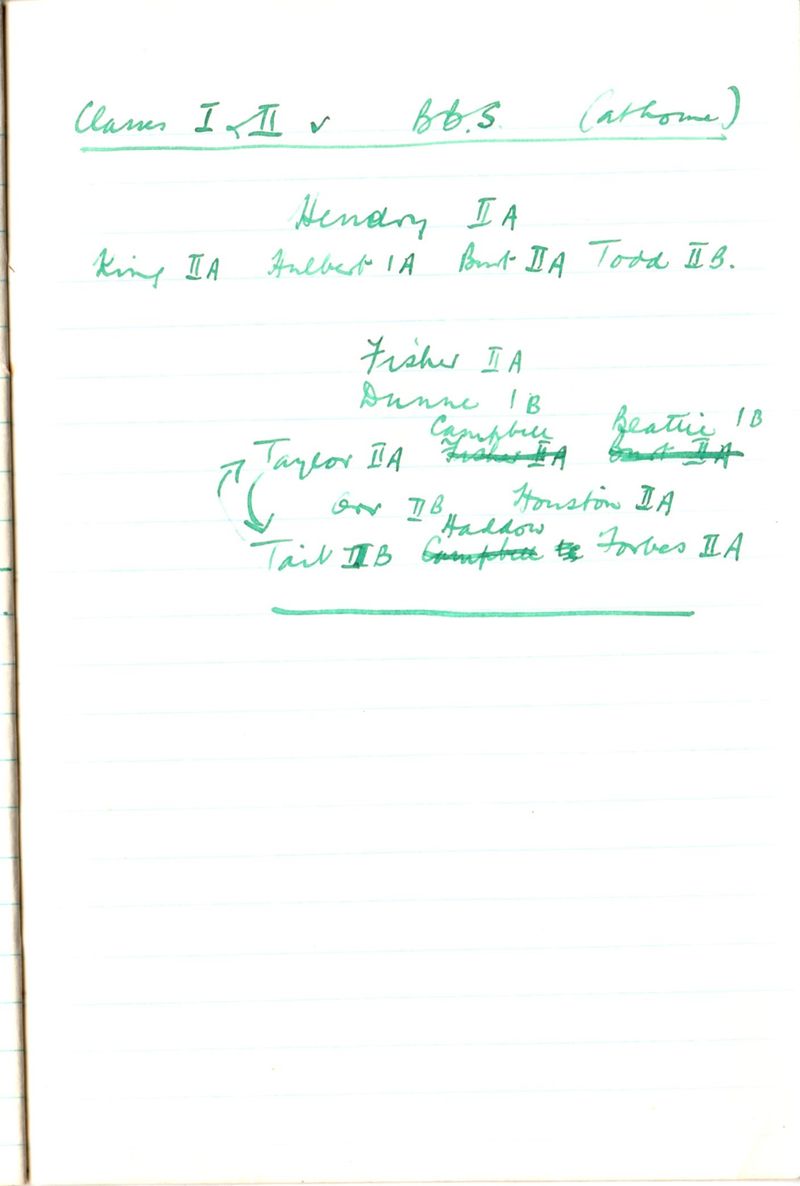 Classes I & II v B.b.S. (at home)
Hendry II A
King II A Hulbert 1A Burt II A Todd II B.
Fisher II A
Dunne 1B
Campbell Beattie 1B
Taylor II A Fisher II A Burt II A
Orr II B Houston II A
Haddow
Tait II B Campbell Forbes II A